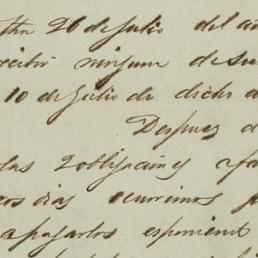 20 de Julio del añ
recibir ninguna de su
10 de Julio de dicho a
Despues d
las 2 obligaciones a fa
cos dias ocurrimos p
apagarlos esponiend